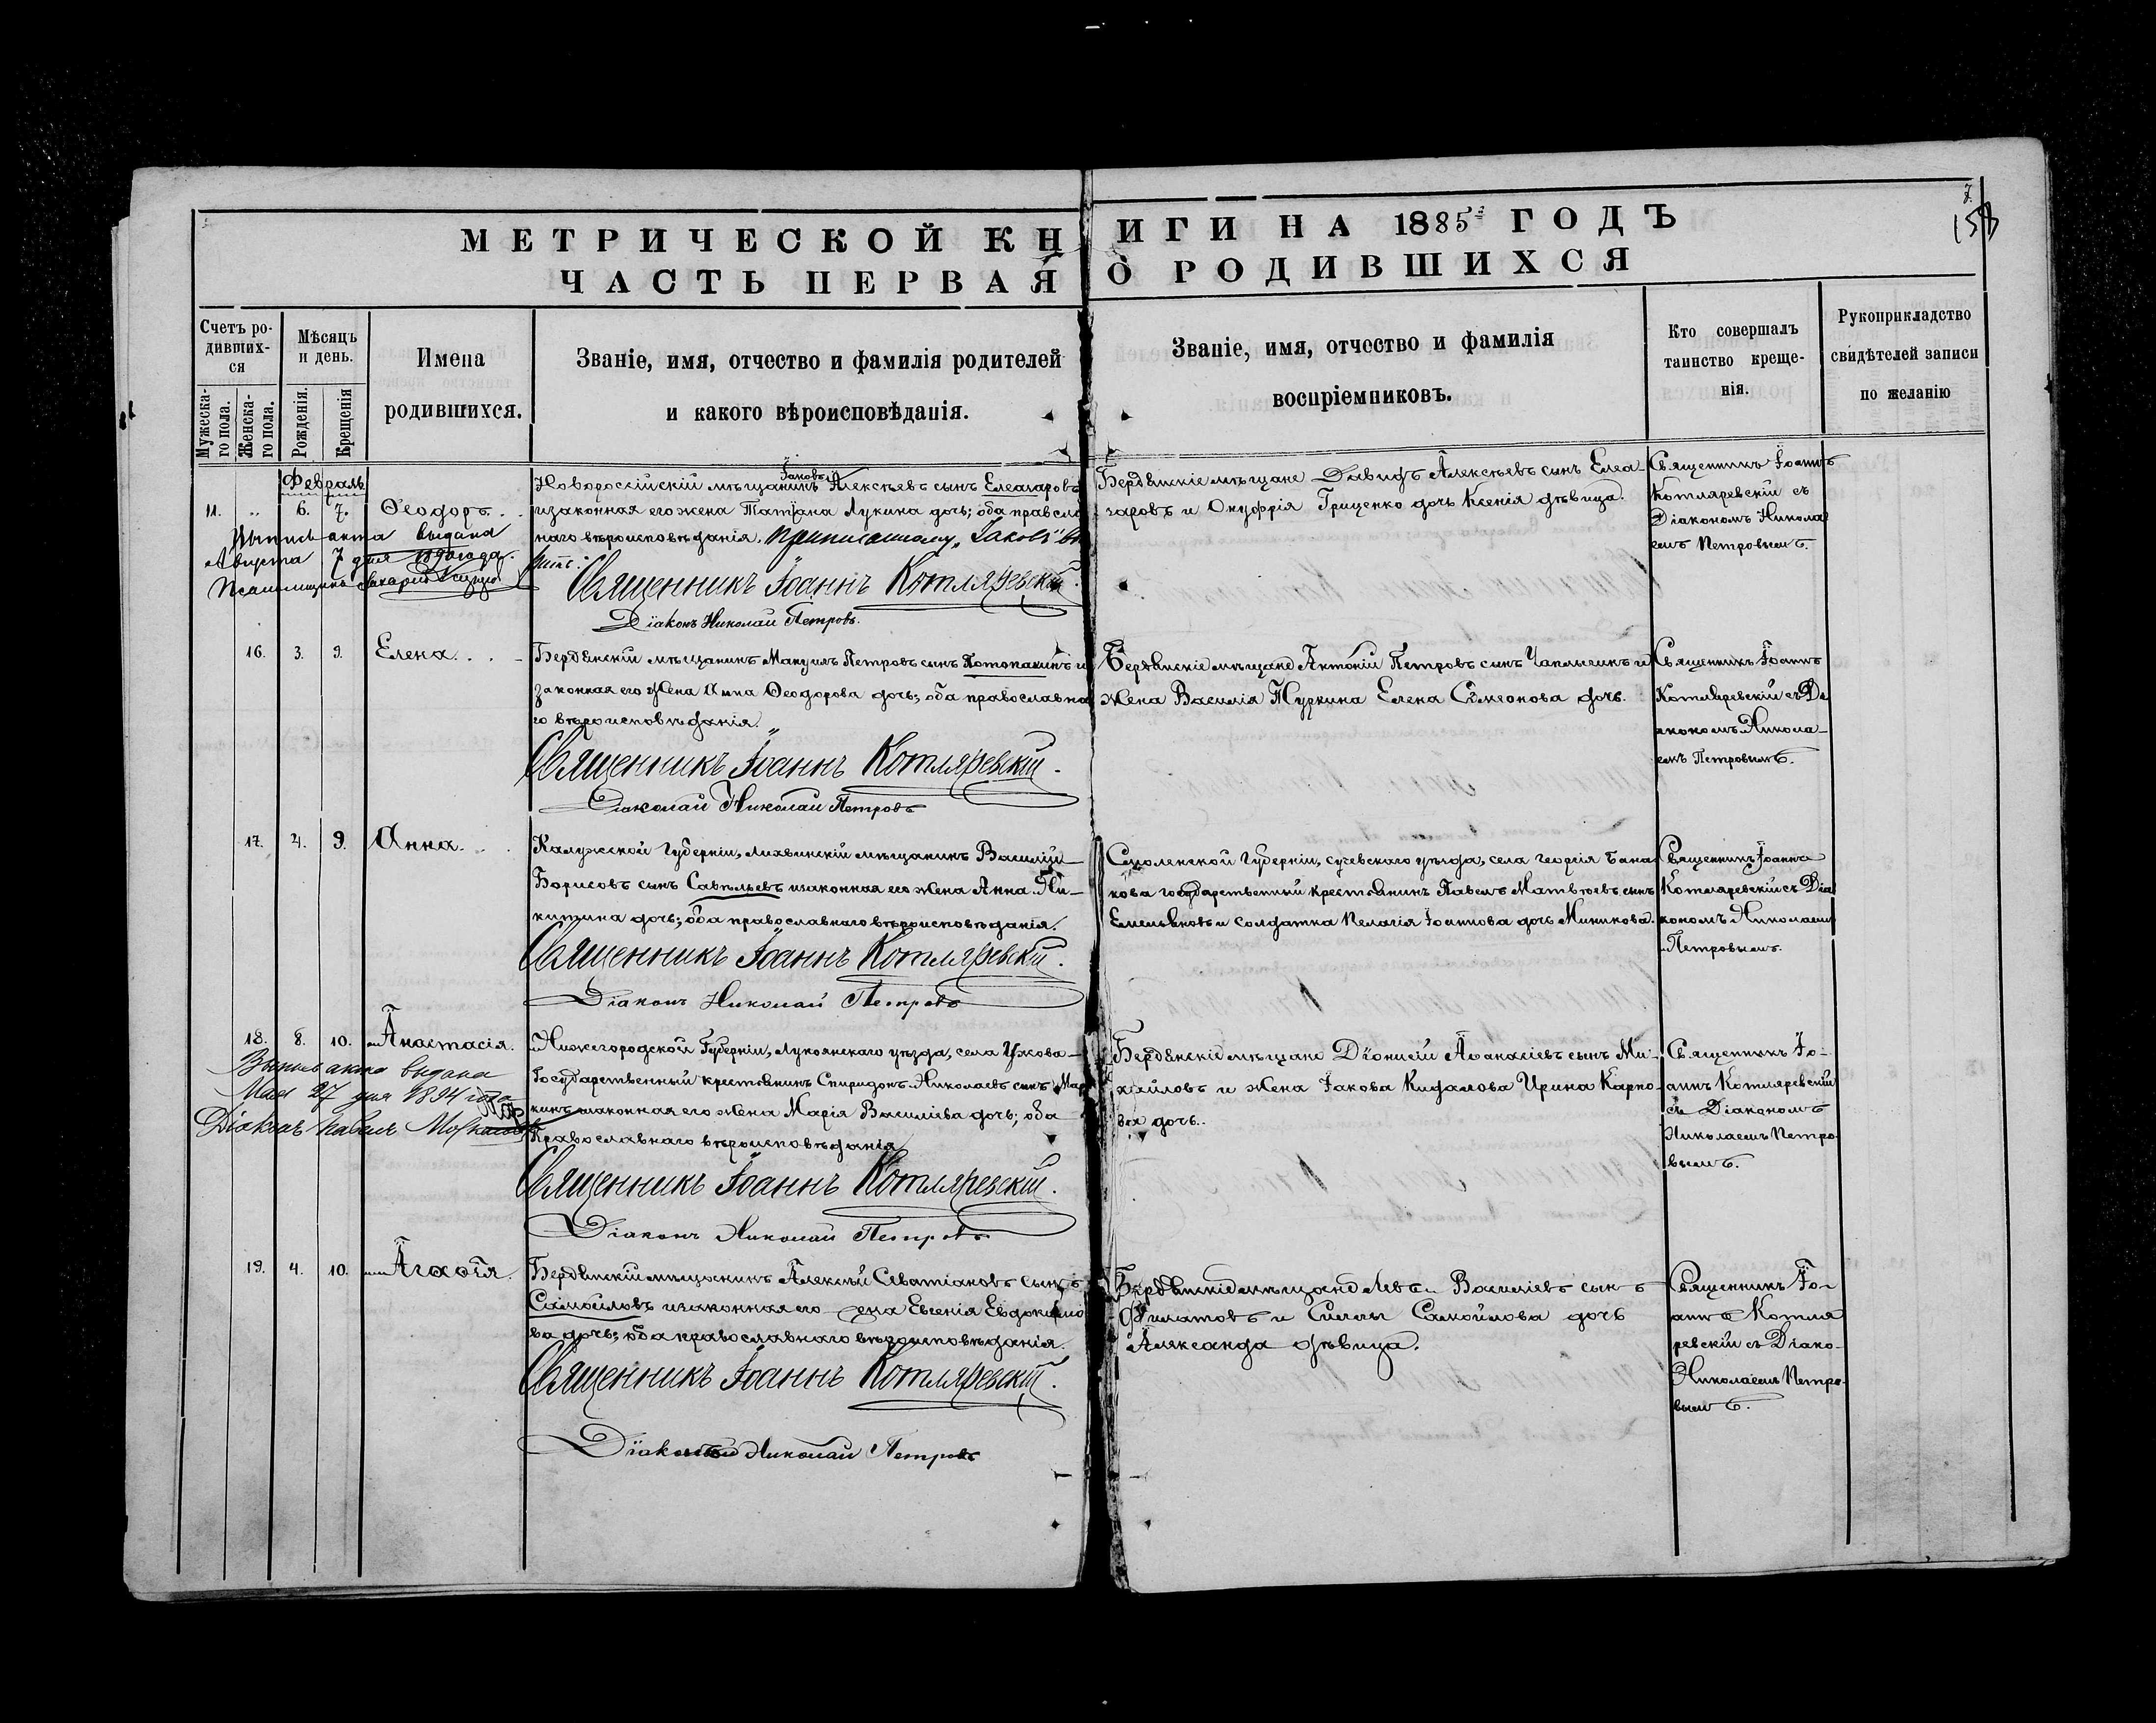 7.
МЕТРИЧЕСКОЙ КНИГИ НА 1885й ГОДЪ
ЧАСТЬ ПЕРВАЯ О РОДИВШИХСЯ
Счетъ родившихся
Мужескаго пола.
Женскаго пола.
Мѣсяцъ и день.
Рожденія.
Крещенія
Имена
родившихся.
Званіе, имя, отчество и фамилія родителей
и какого вѣроисповѣданія.
Званіе, имя, отчество и фамилія
воспріемниковъ.
Кто совершалъ
таинство креще-
нія.
Рукоприкладство
свидѣтелей записи
по желанію
Февраль
11. „ 6. 7. Ѳеодоръ
Выпись акта выдана
Августа 7 дня 1890 года.
Псаломщикъ Захарій
Іаковъ
Новороссійскій мѣщанинъ Алексѣевъ сынъ Елеазаровъ
и законная его жена Татіана Лукина дочь; оба правосла
наго вѣроисповѣданія. Приписанному „Іаковъ" вѣ
рить:
Священникъ Іоаннъ Котляревскій.
Діаконъ Николай Петровъ.
Бердянскіе мѣщане Давидъ Алексѣевъ сынъ Елеа-
заровъ и Онуфрія Гриценко дочь Ксенія дѣвица.
Священникъ Іоаннъ
Котляревскій съ
Діакономъ Никола
емъ Петровымъ.
16. 3. 9. Елена
Бердянскій мѣщанинъ Мануилъ Петровъ сынъ Потопакинъ и
законная его жена Анна Ѳеодорова дочь; оба православна
го вѣроисповѣданія.
Священникъ Іоаннъ Котляревскій.
Николай Петровъ
Бердянскіе мѣщане Антоній Петровъ сынъ Чаплыгинъ и
жена Василія Туркина Елена Симеонова дочь.
Священникъ Іоаннъ
Котляревскій съ Ді
акономъ Никола-
емъ Петровымъ.
17. 4. 9. Анна
Калужской Губерніи, Лихвинскій мѣщанинъ Василій
Борисовъ сынъ Савельевъ и законная его жена Анна Ни-
китина дочь; оба православнаго вѣроисповѣданія.
Священникъ Іоаннъ Котляревскій.
Діаконъ Николай Петровъ
Смоленской Губерніи, сучевскаго уѣзда, села Георгія Бана
кова государственный крестьянинъ Павелъ Матвѣевъ сынъ
Емельяновъ и солдатка Пелагія Іоаннова дочь Миникова.
Священникъ Іоаннъ
Котляревскій съ Діа
кономъ Николаемъ
Петровымъ.
18. 8. 10. Анастасія.
Выпись акта выдана
Мая 27 дня 1894 года
Діаконъ Павелъ
Нижегородской Губерніи, Лукоянскаго уѣзда, села Ужова
Государственный крестьянинъ Спиридонъ Николаевъ сынъ Мар
кинъ и законная его жена Марія Василіева дочь; оба
Православнаго вѣроисповѣданія
Священникъ Іоаннъ Котляревскій.
Діаконъ Николай Петровъ
Бердянскіе мѣщане Діонисій Аѳанасіевъ сынъ Ми-
хайловъ и жена Іакова Кидалова Ирина Карпо-
ва дочь.
Священникъ Іо-
аннъ Котляревскій
съ Діакономъ
Николаемъ Петро-
вымъ.
19. 4. 10. Агаѳія.
Бердянскій мѣщанинъ Алексѣй Севатіановъ сынъ
Самойловъ и законная его жена Евгенія Евдокимо
ва дочь; оба православнаго вѣроисповѣданія.
Священникъ Іоаннъ Котляревскій.
Діаконъ Николай Петровъ
Бердянскіе мѣщане Левъ Василіевъ сынъ
Филатовъ и Симы Самойлова дочь
Александа дѣвица.
Священникъ Іо-
аннъ Котля
ревскій съ Діако-
Николаемъ Петро-
вымъ.